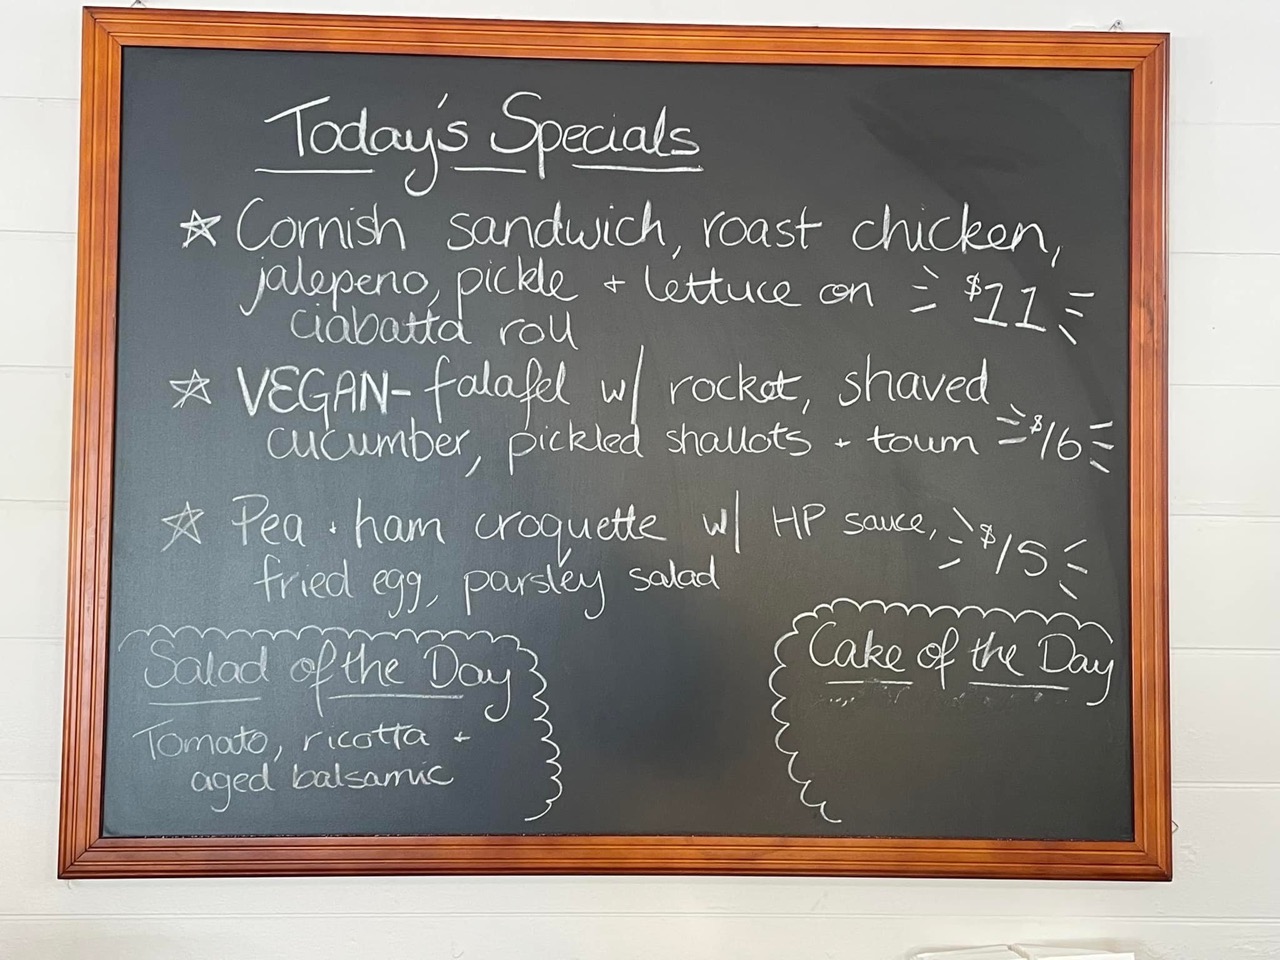 Today's Specials
☆ Cornish sandwich, roast chicken,
jalepeno, pickle + lettuce on $11
ciabatta roll
☆ VEGAN- falafel w/ rocket, shaved
cucumber, pickled shallots + toum $16
☆ Pea + ham croquette w/ HP sauce, $15
fried egg, parsley salad
Salad of the Day
Tomato, ricotta +
aged balsamic
Cake of the Day